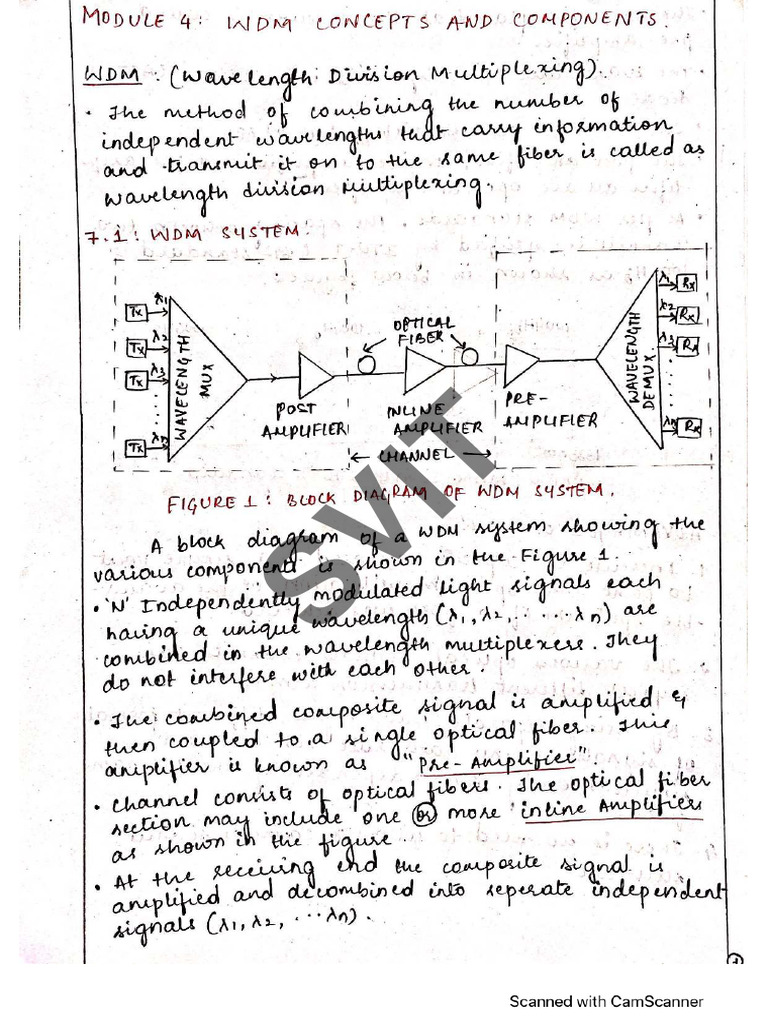 MODULE 4: WDM CONCEPTS AND COMPONENTS.
WDM : (Wavelength Division Multiplexing).
• The method of combining the number of
independent wavelengths that carry information
and transmit it on to the same fiber is called as
wavelength division Multiplexing.
7.1: WDM SYSTEM.
Tx λ1
Tx λ2
Tx λ3
Tx λn
WAVELENGTH
MUX
POST
AMPLIFIER
OPTICAL
FIBER
INLINE
AMPLIFIER
← CHANNEL →
PRE-
AMPLIFIER
WAVELENGTH
DEMUX
λ1 Rx
λ2 Rx
λ3 Rx
λn Rx
FIGURE 1: BLOCK DIAGRAM OF WDM SYSTEM.
SVIT
A block diagram of a WDM system showing the
various components is shown in the Figure 1.
• 'N' Independently modulated light signals each
having a unique wavelength (λ1, λ2, ..... λn) are
combined in the wavelength multiplexers. They
do not interfere with each other.
• The combined composite signal is amplified &
then coupled to a single optical fiber. This
amplifier is known as "Pre-Amplifier"
• Channel consists of optical fibers. The optical fiber
section may include one or more inline Amplifiers
as shown in the figure.
• At the receiving end the composite signal is
amplified and decombined into seperate independent
signals (λ1, λ2, ...λn).
1
Scanned with CamScanner